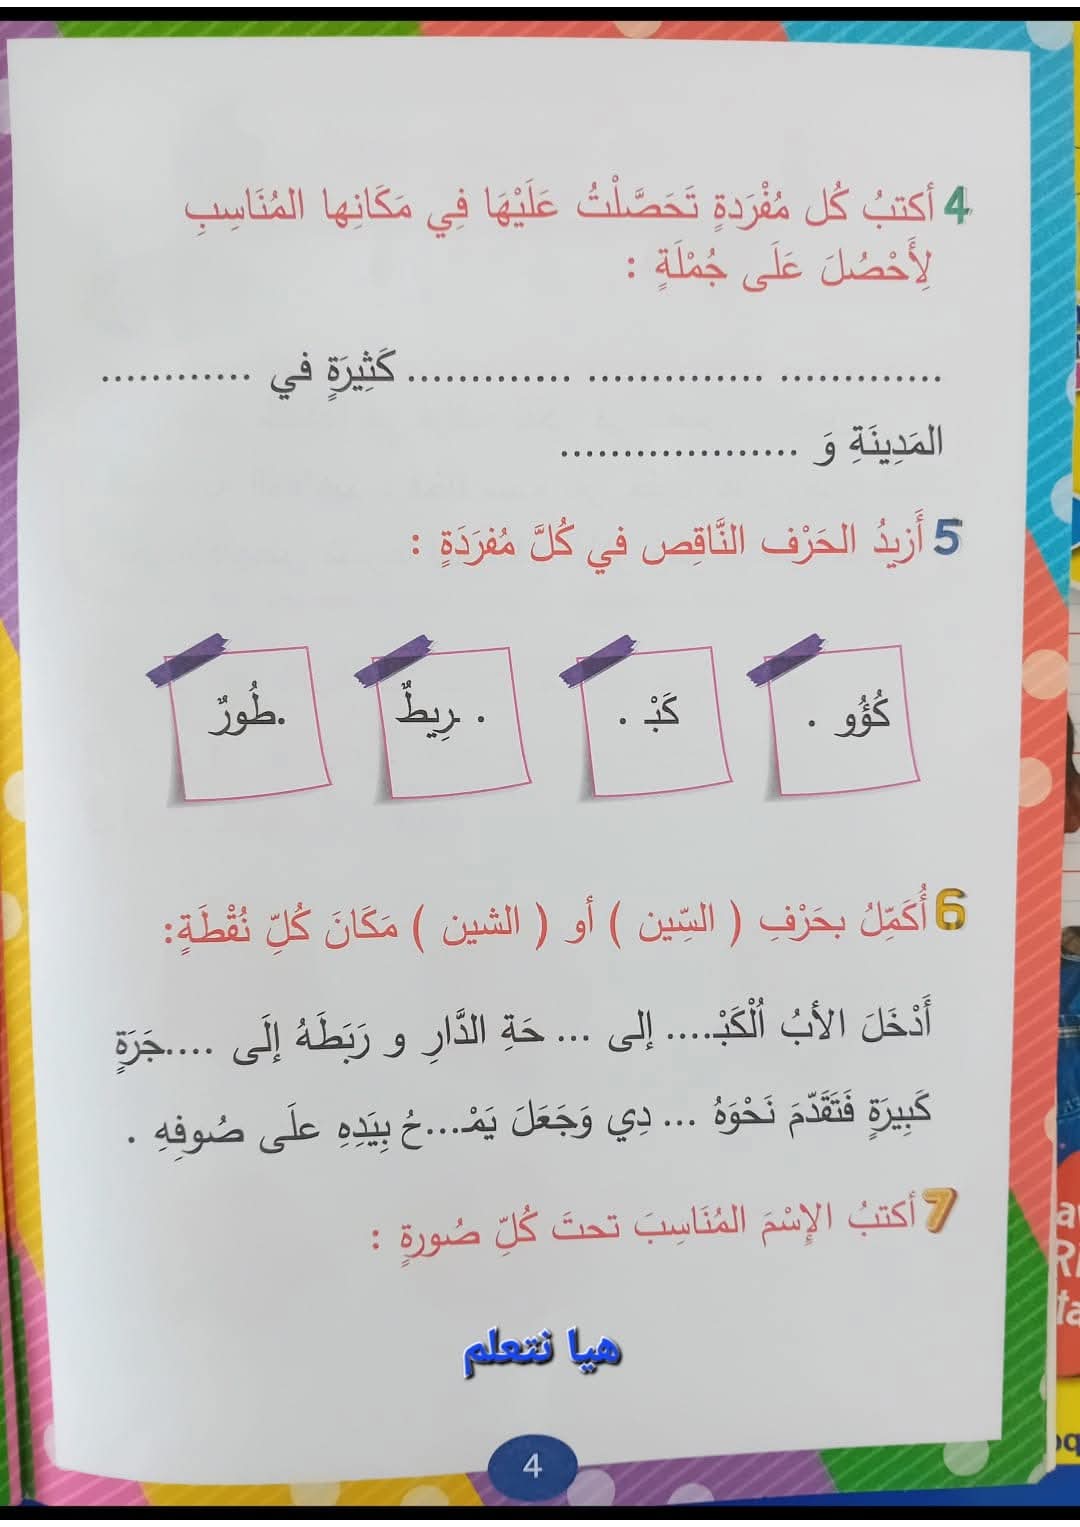 4 أكتبُ كُل مُفْرَدةٍ تَحَصَّلْتُ عَلَيْهَا فِي مَكَانِها المُنَاسِبِ
لِأَحْصُلَ عَلَى جُمْلَةٍ :
............. .............. ............. كَثِيرَةٍ في ............
المَدِينَةِ وَ ...................
5 أَزِيدُ الحَرْف النَّاقِص في كُلَّ مُفرَدَةٍ :
كُؤُو .
كَبْـ .
. ـرِيطٌ
.طُورٌ
6 أُكَمِّلُ بحَرْفِ ( السِّين ) أو ( الشين ) مَكَانَ كُلِّ نُقْطَةٍ:
أَدْخَلَ الأبُ اُلْكَبْـ.... إلى ... حَةِ الدَّارِ و رَبَطَهُ إلَى ....جَرَةٍ
كَبِيرَةٍ فَتَقَدّمَ نَحْوَهُ ... دِي وَجَعَلَ يَمْـ...حُ بِيَدِهِ علَى صُوفِهِ .
7 أكتبُ الإسْمَ المُنَاسِبَ تحتَ كُلِّ صُورةٍ :
هيا نتعلم
4